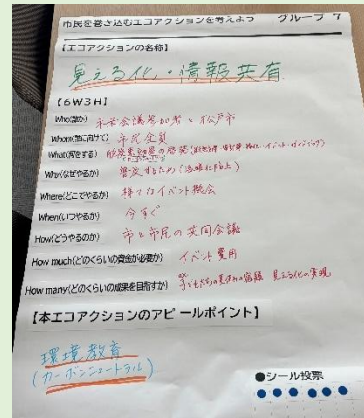 市民を巻き込むエコアクションを考えよう グループ 7
【エコアクションの名称】
見える化・情報共有
【6W3H】
Who(誰が) 市民会議参加者と松戸市
Whom(誰に向けて) 市民全員
What(何をする) の啓発
Why(なぜやるか) するため
Where(どこでやるか) イベント機会
When(いつやるか) 今すぐ
How(どうやるのか) 市と市民の共同会議
How much(どのくらいの資金が必要か) イベント費用
How many(どのくらいの成果を目指すか) 子どもたちの 見える化の実現
【本エコアクションのアピールポイント】
環境教育
(カーボンニュートラル)
●シール投票